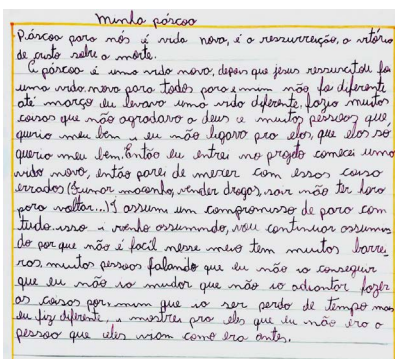 minha páscoa
Páscoa para nós é vida nova, é a ressurreição, a vitória
de cristo sobre a morte.
A páscoa é uma vida nova, depois que jesus ressuscitou foi
uma vida nova para todos para mim não foi diferente
até março eu levava uma vida diferente, fazia muitas
coisas que não agradava a deus e muitas pessoas que
queria meu bem e eu não ligava pra elas, que elas só
queria meu bem. Então eu entrei no projeto comecei uma
vida nova, então parei de mexer com essas coisa
erradas (fumar maconha, vender drogas, sair não ter hora
para voltar...) assumi um compromisso de para com
tudo isso e venho assumindo, vou continuar assumin
do por que não é facil nesse meio tem muitas barrei
ras, muitas pessoas falando que eu não ia conseguir
que eu não ia mudar que não ia adiantar fazer
as coisas por mim que ia ser perda de tempo mas
eu fiz diferente, e mostrei pra eles que eu não era a
pessoa que eles viam como era antes.